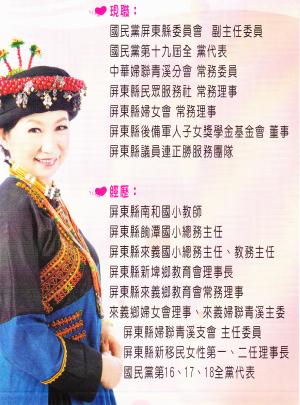 現職：
國民黨屏東縣委員會 副主任委員
國民黨第十九屆全 黨代表
中華婦聯青溪分會 常務委員
屏東縣民眾服務社 常務理事
屏東縣婦女會 常務理事
屏東縣後備軍人子女獎學金基金會 董事
屏東縣議員連正勝服務團隊
經歷：
屏東縣南和國小教師
屏東縣餉潭國小總務主任
屏東縣來義國小總務主任、教務主任
屏東縣新埤鄉教育會理事長
屏東縣來義鄉教育會常務理事
來義鄉婦女會理事、來義婦聯青溪主委
屏東縣婦聯青溪支會 主任委員
屏東縣新移民女性第一、二任理事長
國民黨第16、17、18全黨代表